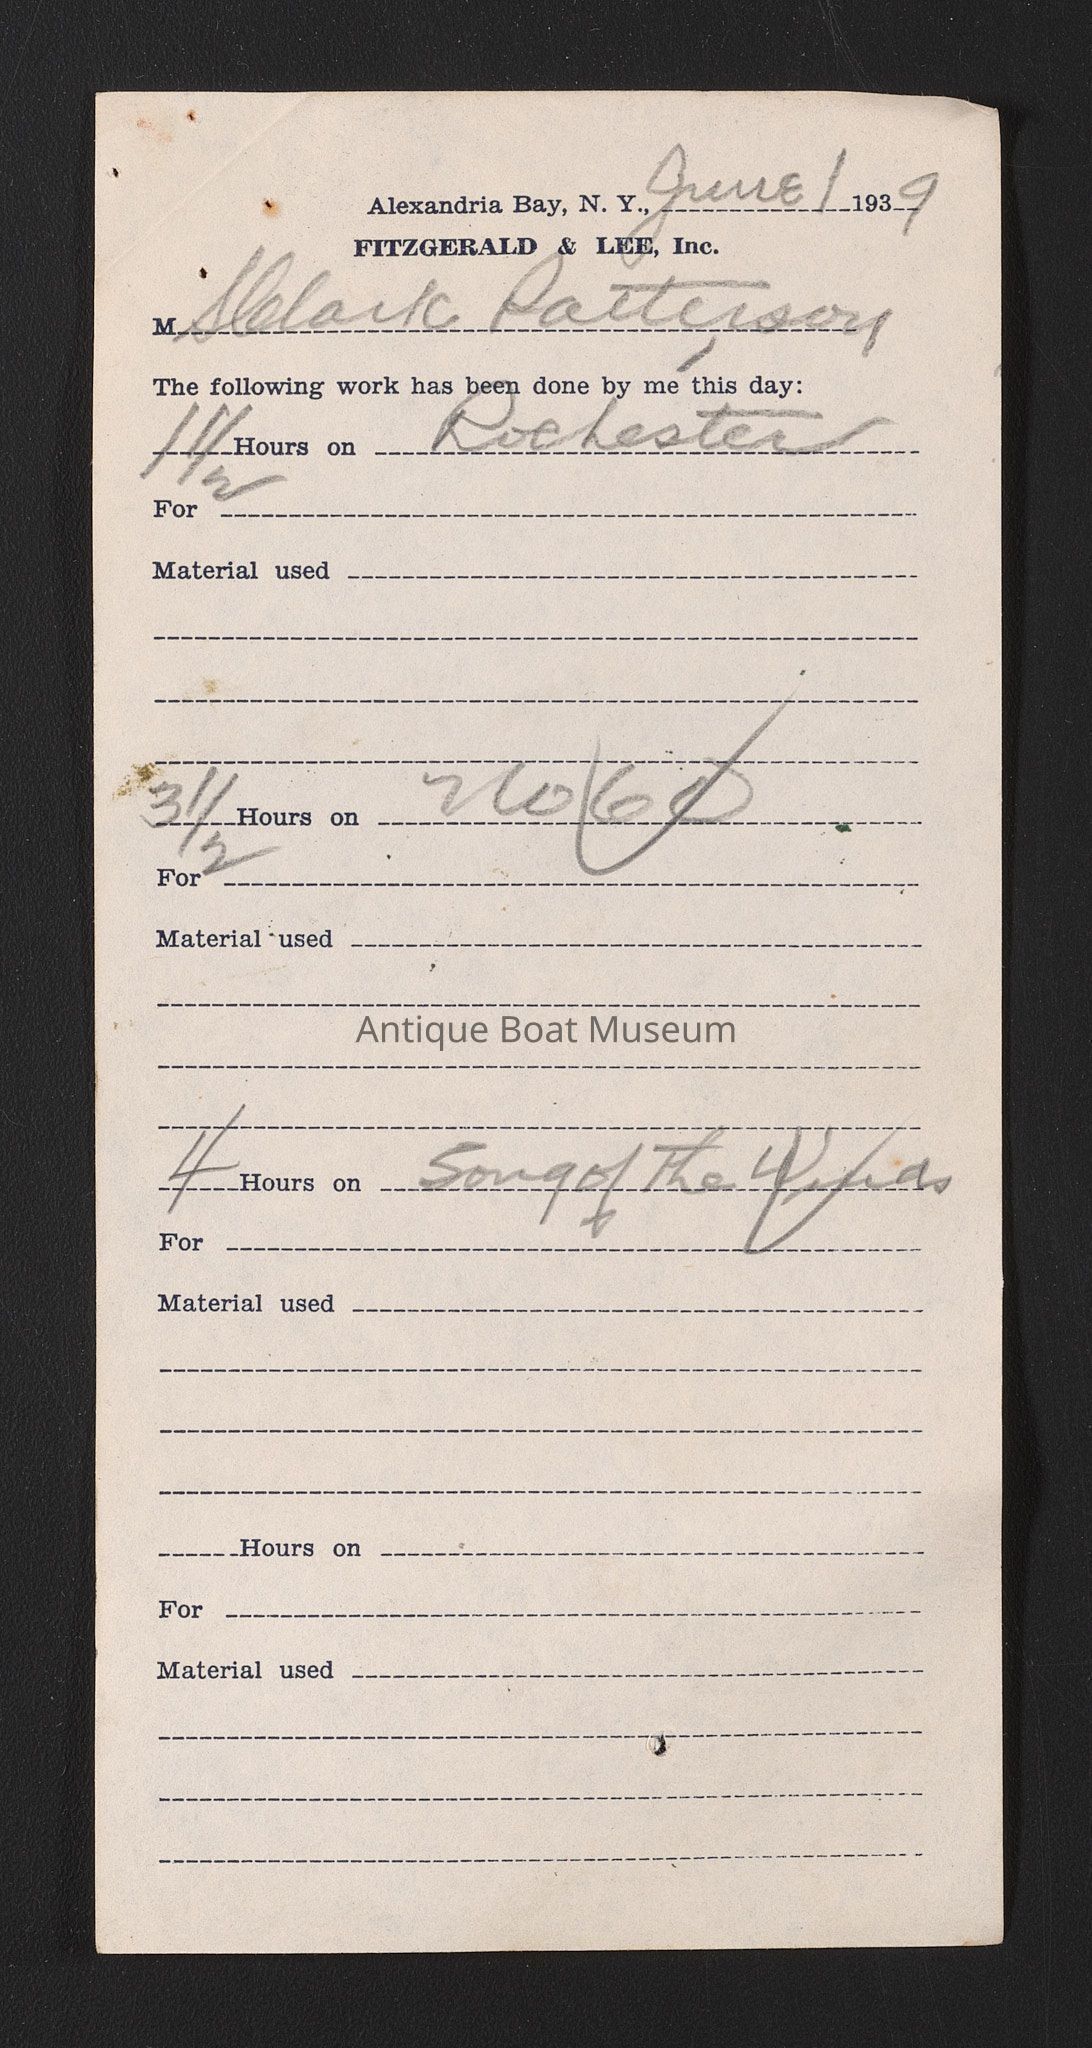 Alexandria Bay, N. Y., June 1 1939
FITZGERALD & LEE, Inc.
M Clark Patterson
The following work has been done by me this day:
1 1/2 Hours on Rochester
For
Material used
3 1/2 Hours on No 60
For
Material used
Antique Boat Museum
4 Hours on Song of The Winds
For
Material used
Hours on
For
Material used